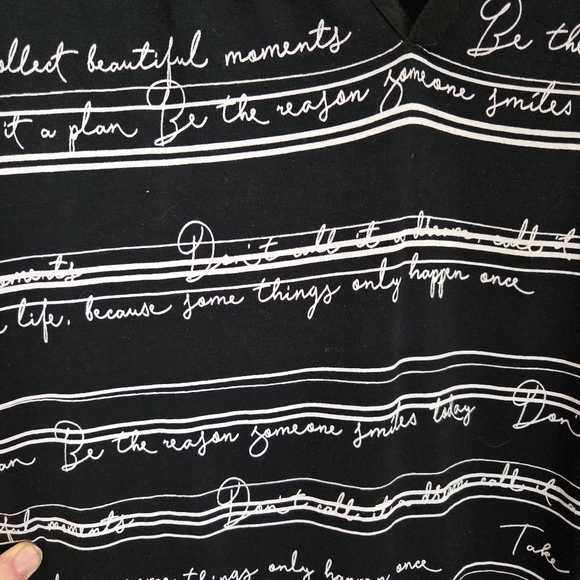 ollect beautiful moments Be the
it a plan Be the reason someone smiles
moments Don't call it a dream, call it
life, because some things only happen once
an Be the reason someone smiles today Don'
ful moments Don't call it a dream call it a
Take
some things only happen once